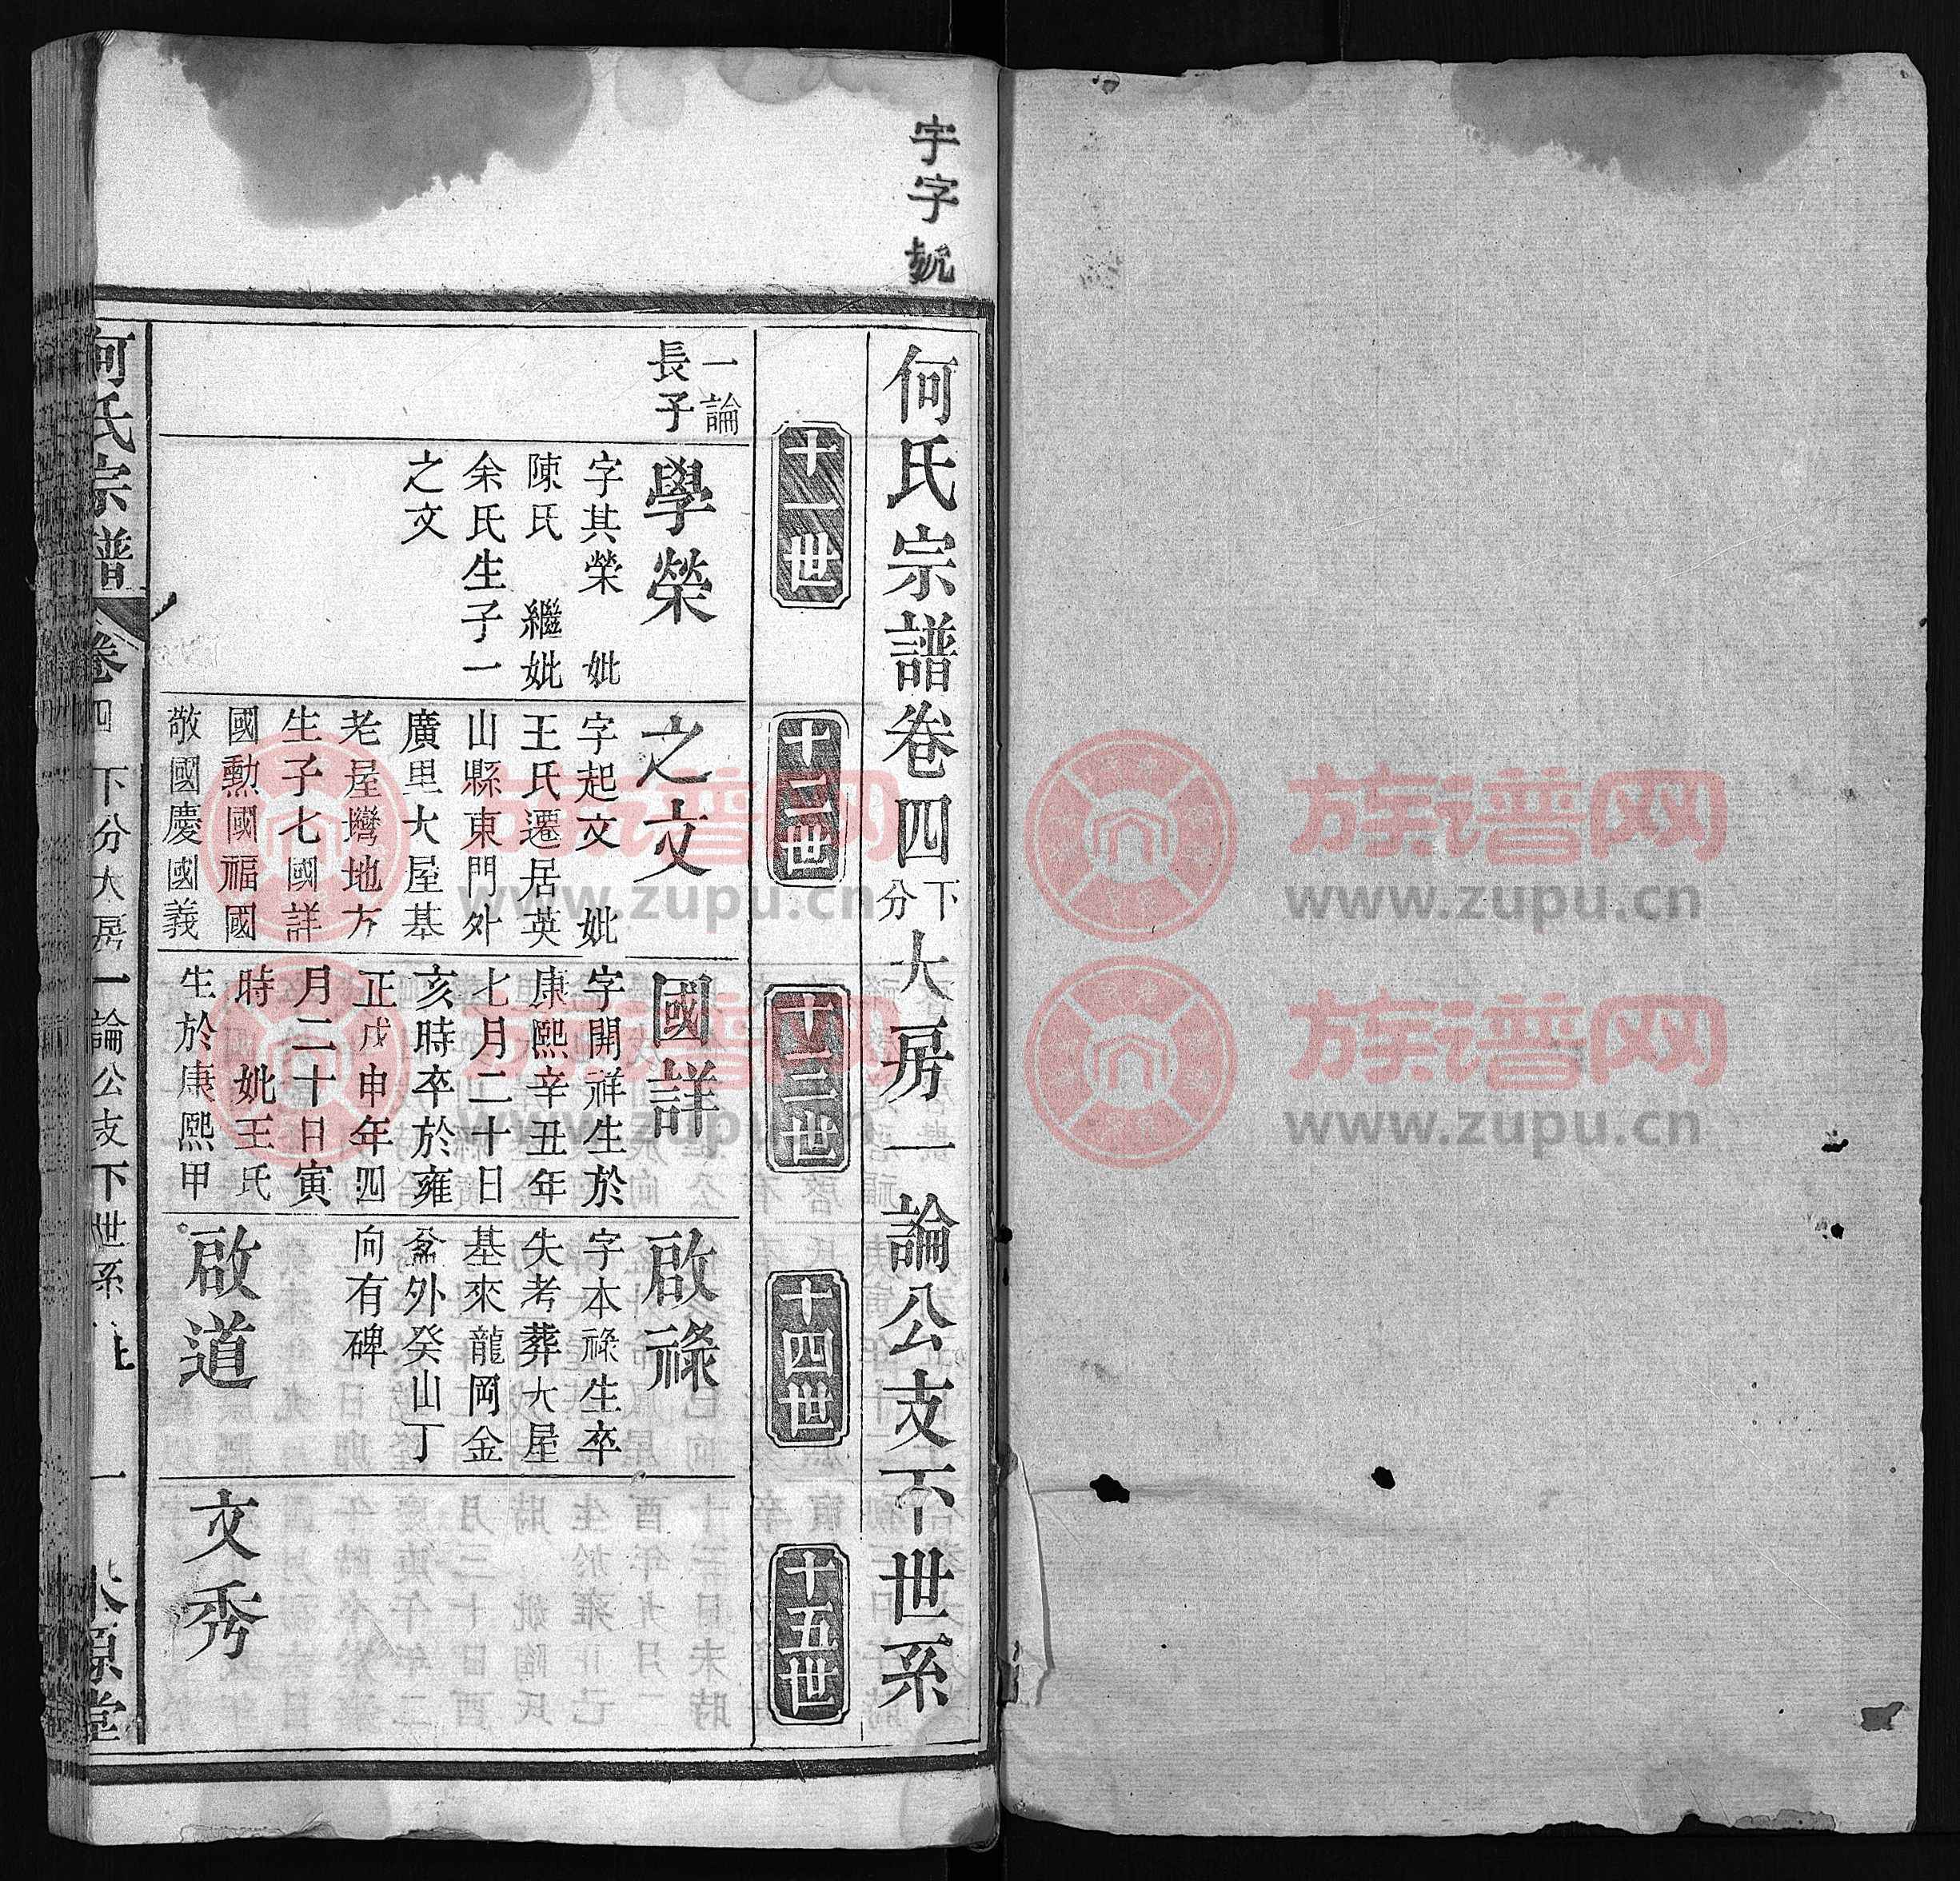 宇字號
何氏宗譜卷四下分大房一論公支下世系
十一世
十二世
十三世
十四世
十五世
一論
長子
學榮
字其榮 妣
陳氏 繼妣
余氏生子一
之文
之文
字起文 妣
王氏遷居英
山縣東門外
廣里大屋基
老屋灣地方
生子七國詳
國勳國福國
敬國慶國義
國詳
字開祥生於
康熙辛丑年
七月二十日
亥時卒於雍
正戊申年四
月二十日寅
時 妣王氏
生於康熙甲
啟祿
字本祿生卒
失考葬大屋
基來龍岡金
盆外癸山丁
向有碑
啟道
文秀
何氏宗譜
卷四
下分大房一論公支下世系
一
本源堂
族谱网
www.zupu.cn
族谱网
www.zupu.cn
族谱网
www.zupu.cn
族谱网
www.zupu.cn